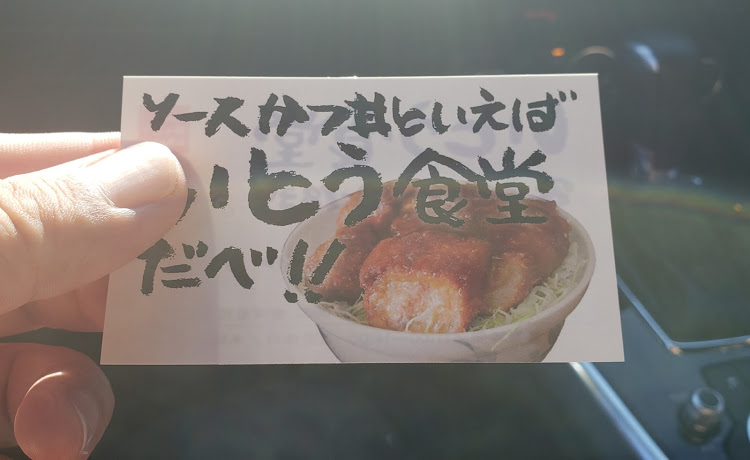 ソースかつ丼といえば
いとう食堂
だべ!!